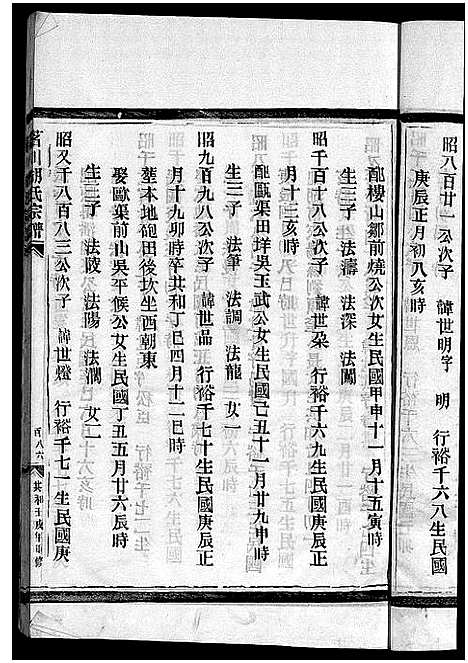 昭八百廿一公次子 諱世明字 明 行裕千六八生民國
庚辰正月初八亥時
配樓山鄒前燒公次女生民國甲申十一月十五寅時
生三子 法濤 法深 法闖
昭千百十八公次子 諱世朶 行裕千六九生民國庚辰正
月十三亥時
配甌渠田垟吳玉武公女生民國己丑十一月廿九申時
生三子 法筆 法調 法龍 女一
昭九百九八公次子 諱世品 行裕千七十生民國庚辰正
月十九卯時卒共和丁巳四月十二巳時
塟本地砲田後坎坐酉朝東
娶歐渠前山吳平候公女生民國丁丑五月廿六辰時
生三子 法陵 法陽 法瀾 女二
昭又千八百八三公次子 諱世燈 行裕千七一生民國庚
茗川胡氏宗譜
共和壬戌年重修